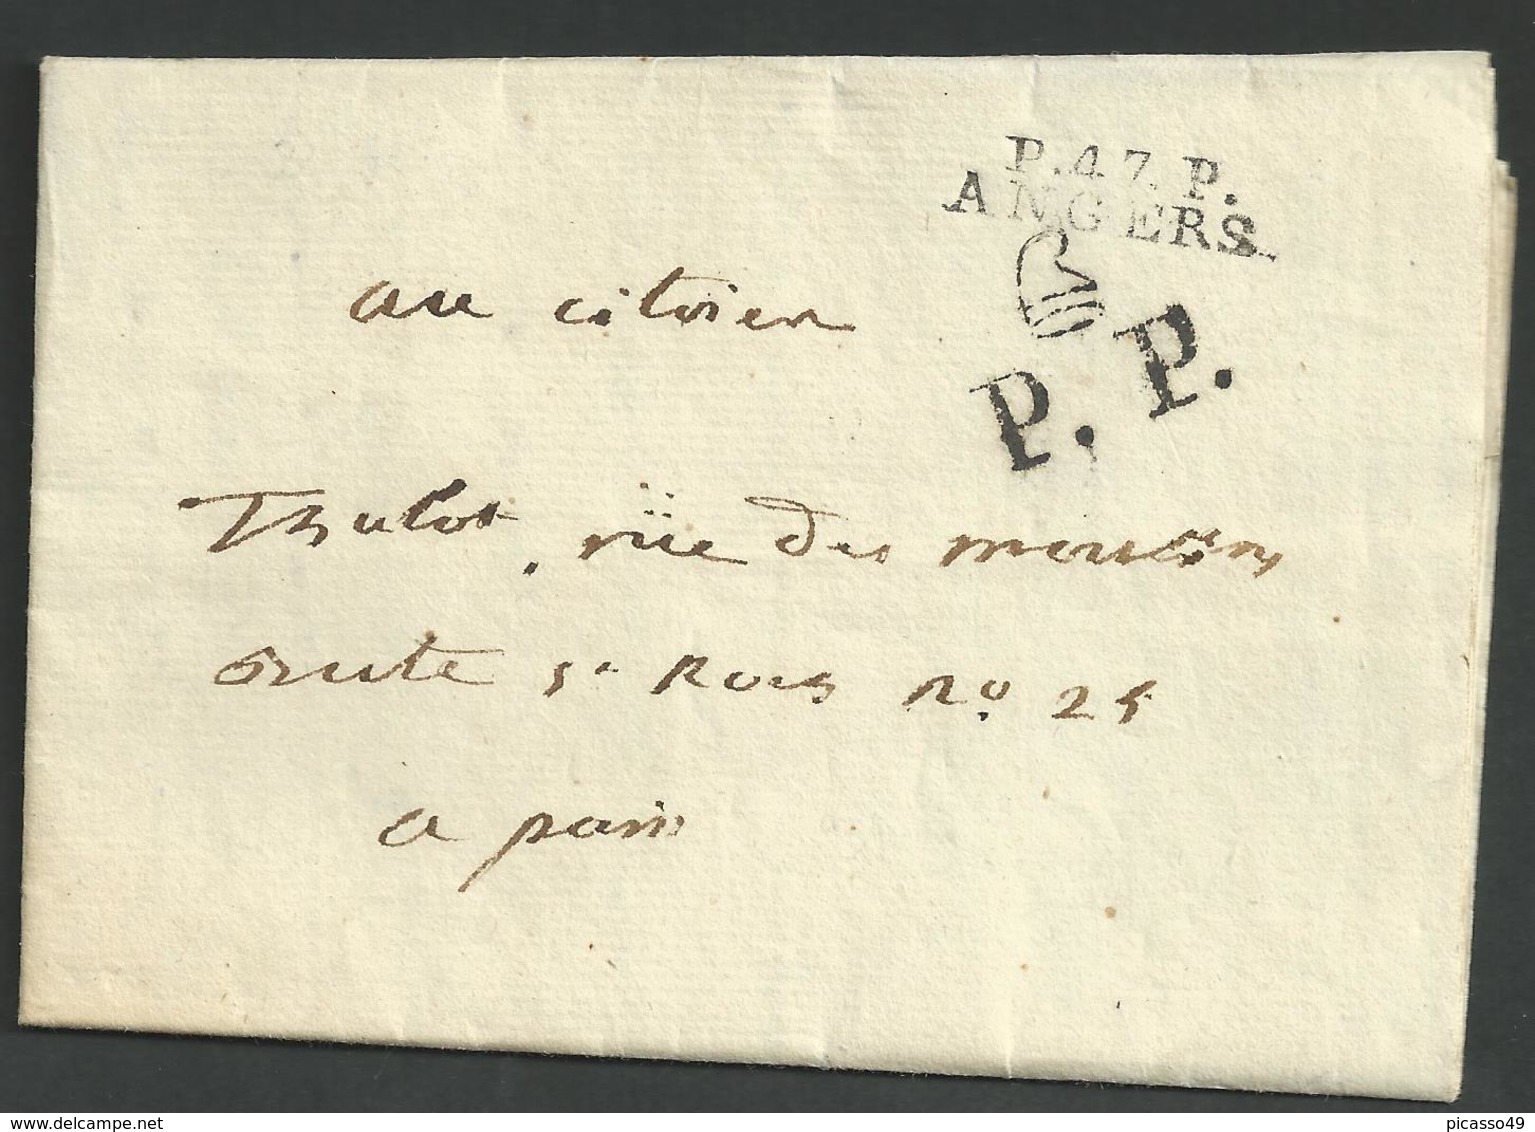 P.47.P.
ANGERS
P.P.
au citoien
Thulot, rüe des moulins
Bute St Roch No. 25
a paris
delcampe.net
picasso49